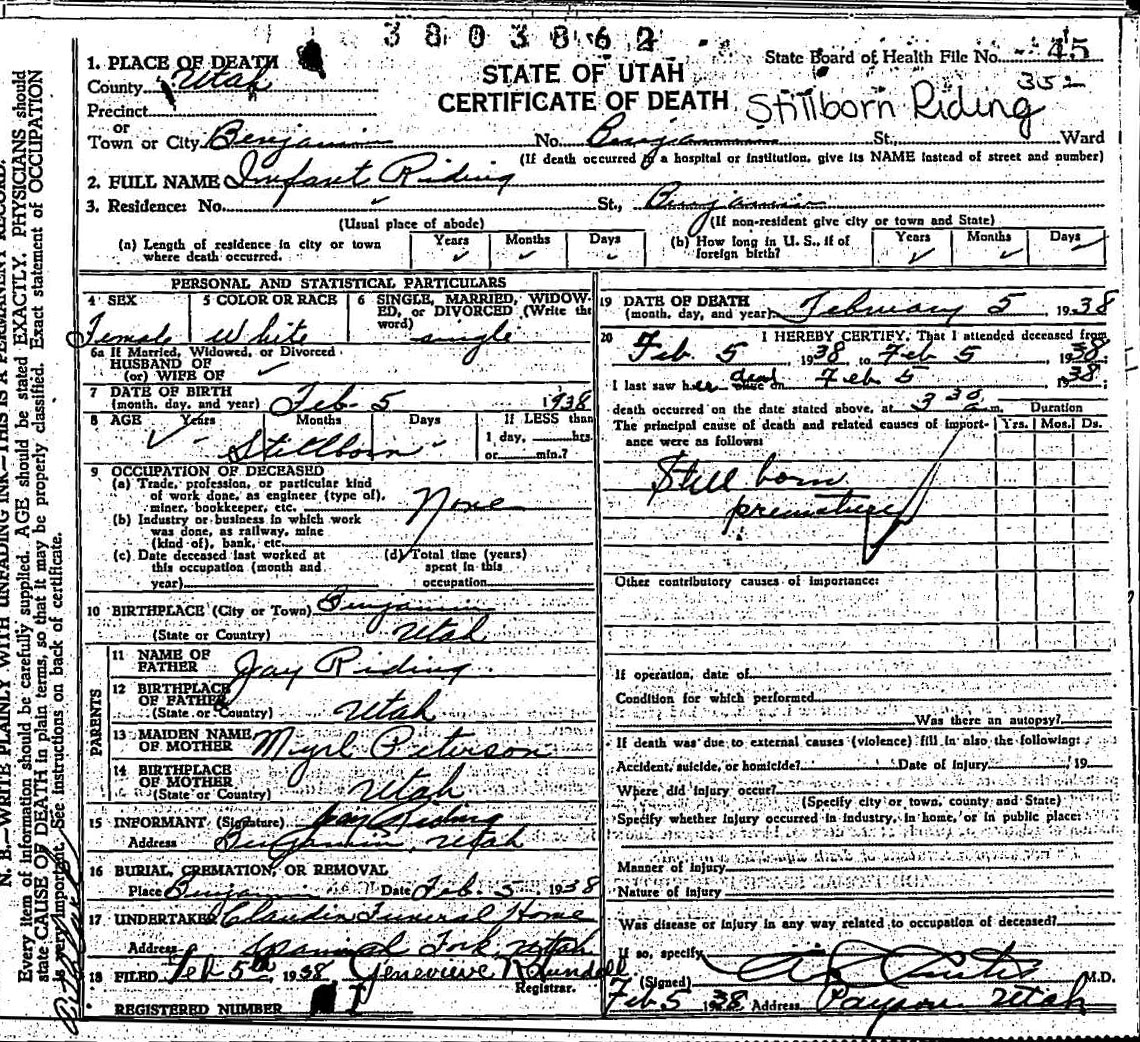 3803862
State Board of Health File No. 45
352
1. PLACE OF DEATH
STATE OF UTAH
CERTIFICATE OF DEATH
Stillborn Riding
County Utah
Precinct
or
Town or City Benjamin No. Benjamin St., Ward
(If death occurred in a hospital or institution, give its NAME instead of street and number)
2. FULL NAME Infant Riding
3. Residence: No. St., Benjamin
(Usual place of abode) (If non-resident give city or town and State)
(a) Length of residence in city or town where death occurred. Years Months Days
(b) How long in U. S., if of foreign birth? Years Months Days
PERSONAL AND STATISTICAL PARTICULARS
4 SEX Female
5 COLOR OR RACE White
6 SINGLE, MARRIED, WIDOWED, or DIVORCED (Write the word) single
6a If Married, Widowed, or Divorced
HUSBAND OF
(or) WIFE OF
7 DATE OF BIRTH
(month, day, and year) Feb. 5 1938
8 AGE Years Months Days If LESS than
1 day, hrs.
or min.?
Stillborn
9 OCCUPATION OF DECEASED
(a) Trade, profession, or particular kind
of work done, as engineer (type of),
miner, bookkeeper, etc. None
(b) Industry or business in which work
was done, as railway, mine
(kind of), bank, etc.
(c) Date deceased last worked at
this occupation (month and
year)
(d) Total time (years)
spent in this
occupation
10 BIRTHPLACE (City or Town) Benjamin
(State or Country) Utah
PARENTS
11 NAME OF
FATHER Jay Riding
12 BIRTHPLACE
OF FATHER
(State or Country) Utah
13 MAIDEN NAME
OF MOTHER Myrl Peterson
14 BIRTHPLACE
OF MOTHER
(State or Country) Utah
15 INFORMANT (Signature) Jay Riding
Address Benjamin, Utah
16 BURIAL, CREMATION, OR REMOVAL
Place Benjamin Date Feb. 5 1938
17 UNDERTAKER Funeral Home
Address Spanish Fork, Utah
18 FILED Feb 5th, 1938 Genevieve
Registrar.
REGISTERED NUMBER 1
19 DATE OF DEATH
(month, day, and year) February 5, 1938
20 I HEREBY CERTIFY, That I attended deceased from
Feb 5 1938 to Feb 5 1938;
I last saw her dead on Feb 5 1938;
death occurred on the date stated above, at 3 30 a.m.
Duration
The principal cause of death and related causes of importance were as follows:
Yrs. Mos. Ds.
Still born
premature
Other contributory causes of importance:
If operation, date of
Condition for which performed
Was there an autopsy?
If death was due to external causes (violence) fill in also the following:
Accident, suicide, or homicide? Date of injury 19
Where did injury occur?
(Specify city or town, county and State)
Specify whether injury occurred in industry, in home, or in public place:
Manner of injury
Nature of injury
Was disease or injury in any way related to occupation of deceased?
If so, specify
(Signed) Curtis M.D.
Feb 5 1938 Address Payson Utah
N. B.—WRITE PLAINLY WITH UNFADING INK—THIS IS A PERMANENT RECORD.
Every item of information should be carefully supplied. AGE should be stated EXACTLY. PHYSICIANS should
state CAUSE OF DEATH in plain terms, so that it may be properly classified. Exact statement of OCCUPATION
is very important. See instructions on back of certificate.